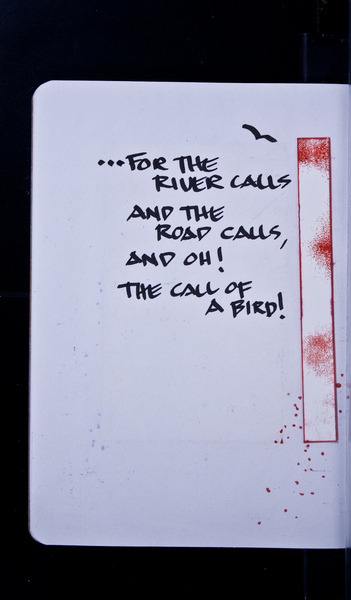 ...FOR THE
RIVER CALLS
AND THE
ROAD CALLS,
AND OH!
THE CALL OF
A BIRD!